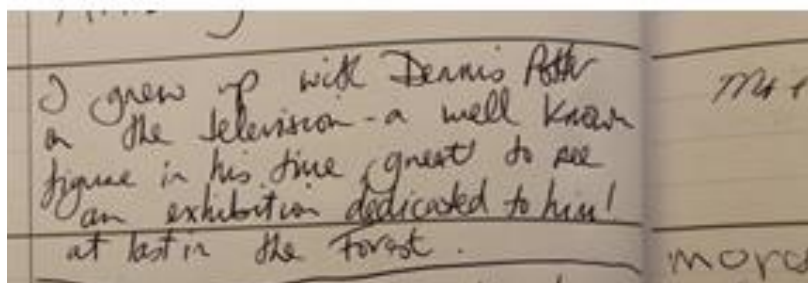 I grew up with Dennis Potter
on the television - a well known
figure in his time, great to see
an exhibition dedicated to him!
at last in the Forest.
more